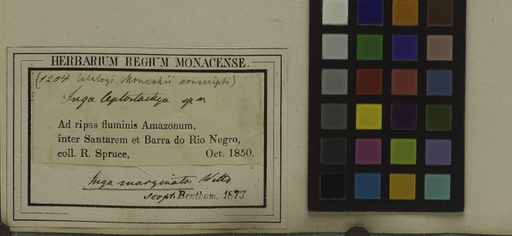 HERBARIUM REGIUM MONACENSE.
(1204 Catalogi Monachii conscripti)
Inga leptostachya sp. n.
Ad ripas fluminis Amazonum,
inter Santarem et Barra do Rio Negro,
coll. R. Spruce, Oct. 1850.
Inga marginata Willd
scrps. Benthom. 1873